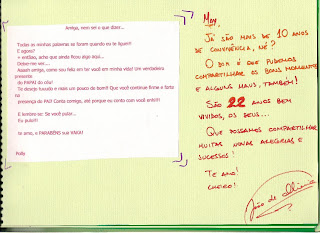 Amiga, nem sei o que dizer...
Todas as minhas palavras se foram quando eu te liguei!
E agora?
= então, acho que ainda ficou algo aqui...
Deixe-me ver...
Aaaah amiga, como sou feliz em ter você em minha vida! Um verdadeiro presente
do PAPAI do céu!
Te desejo tuuudo e mais um pouco de bom!! Que você continue firme e forte na
presença do PAI! Conta comigo, até porque eu conto com você antes!!
E lembre-se: Se você pular...
Eu pulo!!!
te amo, e PARABÉNS sua VACA!
Polly
May,
Já são mais de 10 anos
de convivência, né?
O dia é que pudemos
compartilhar os bons momentos
e alguns maus, também!
São 22 anos bem
vividos, os seus...
Que possamos compartilhar
muitas novas alegrias e
sucessos!
Te amo!
Cheiro!
João de